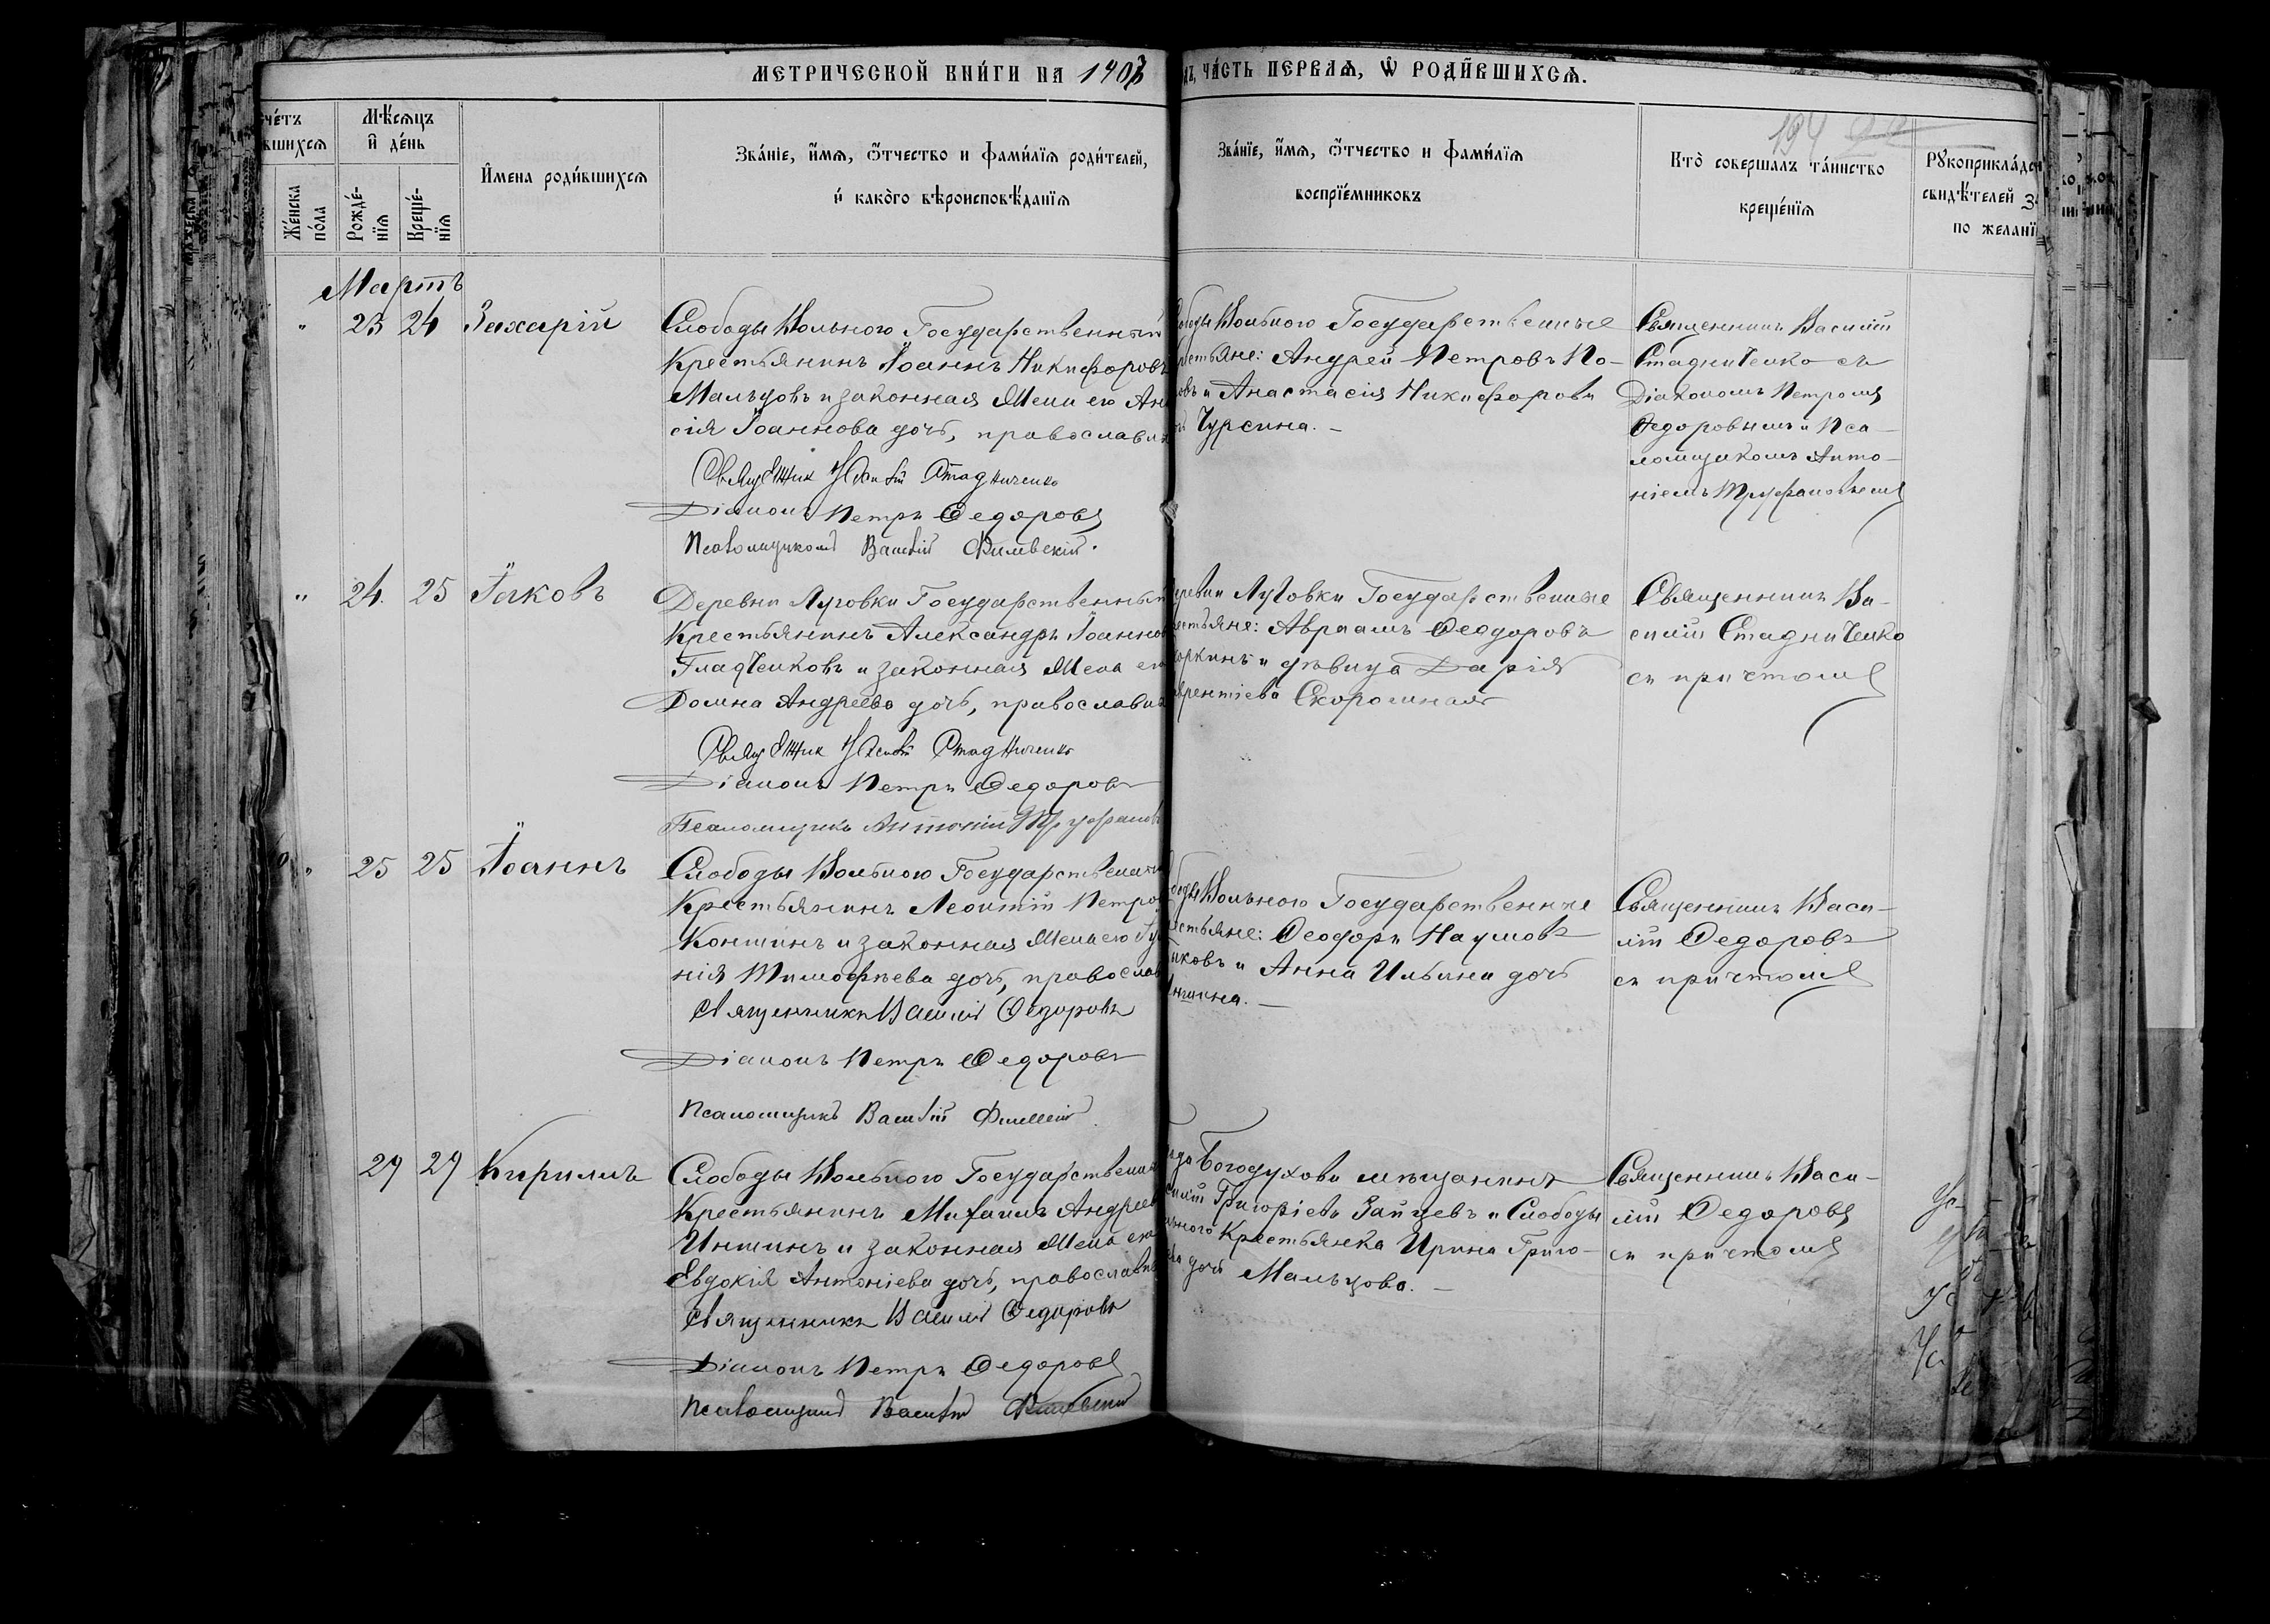 МЕТРИЧЕСКОЙ КНИ́ГИ НА 190
ЧА́СТЬ ПЕРВАѦ, Ѡ҆ РОДИ́ВШИХСѦ.
194
че́тъ
вшихсѧ
Мѣ́сѧцъ
и҆ де́нь
Же́нска
по́ла
Рожде́-
нїѧ
Креще́-
нїѧ
И҆мена роди́вшихсѧ
Зва́нїе, и҆́мѧ, ѻ҆́тчество и фами́лїѧ роди́телей,
и҆ како́го вѣроисповѣ́данїѧ
Зва́нїе, и҆́мѧ, ѻ҆́тчество и фами́лїѧ
воспрїе́мниковъ
Кто̀ соверша́лъ та́инство
креще́нїѧ
Рꙋкоприкла́дс
свидѣ́телей
по жела́нї
Мартъ
" 23 24 Захарій
Слободы Вольного Государственный
Крестьянинъ Іоаннъ Никифоровъ
Мальцовъ и законная Жена его Ана
сія Іоаннова дочь, православн
Священник Василій Стадниченко
Діаконъ Петръ Ѳедоровъ
Псаломщикъ Василій
ободы Вольного Государственные
рестьяне: Андрей Петровъ По-
овъ и Анастасія Никифорова
Чурсина. –
Священникъ Василій
Стадниченко съ
Діакономъ Петромъ
Ѳедоровымъ и Пса-
ломщикомъ Анто-
ніемъ Труфановымъ
" 24. 25 Іаковъ
Деревни Луговки Государственный
Крестьянинъ Александръ Іоанновъ
Гладченковъ и законная Жена его
Домна Андреева дочь, православн
Священник Василій Стадниченко
Діаконъ Петръ Ѳедоровъ
Псаломщикъ Антоній Труфановъ
еревни Луговки Государственные
естьяне: Авраамъ Ѳеодоровъ
оркинъ и дѣвица Дарія
врентіева Скоромная
Священникъ Ва-
силій Стадниченко
съ причтомъ
" 25 25 Іоаннъ
Слободы Вольного Государственный
Крестьянинъ Леонтій Петров
Коншинъ и законная Жена его
нія Тимофѣева дочь, православ
Священникъ Василій Ѳедоровъ
Діаконъ Петръ Ѳедоровъ
Псаломщикъ Василій
боды Вольного Государственные
естьяне: Ѳеодоръ Наумовъ
иковъ и Анна Ильина дочь
Иншина. –
Священникъ Васи-
лій Ѳедоровъ
съ причтомъ
29 29 Кириллъ
Слободы Вольного Государственн
Крестьянинъ Михаилъ Андреев
Иншинъ и законная Жена его
Евдокія Антоніева дочь, православн
Священникъ Василій Ѳедоровъ
Діаконъ Петръ Ѳедоровъ
Псаломщикъ Василій
ода Богодухова мѣщанинъ
силій Григоріевъ Зайцевъ и Слободы
льного Крестьянка Ирина Григо-
ва дочь Мальцова. –
Священникъ Васи-
лій Ѳедоровъ
съ причтомъ